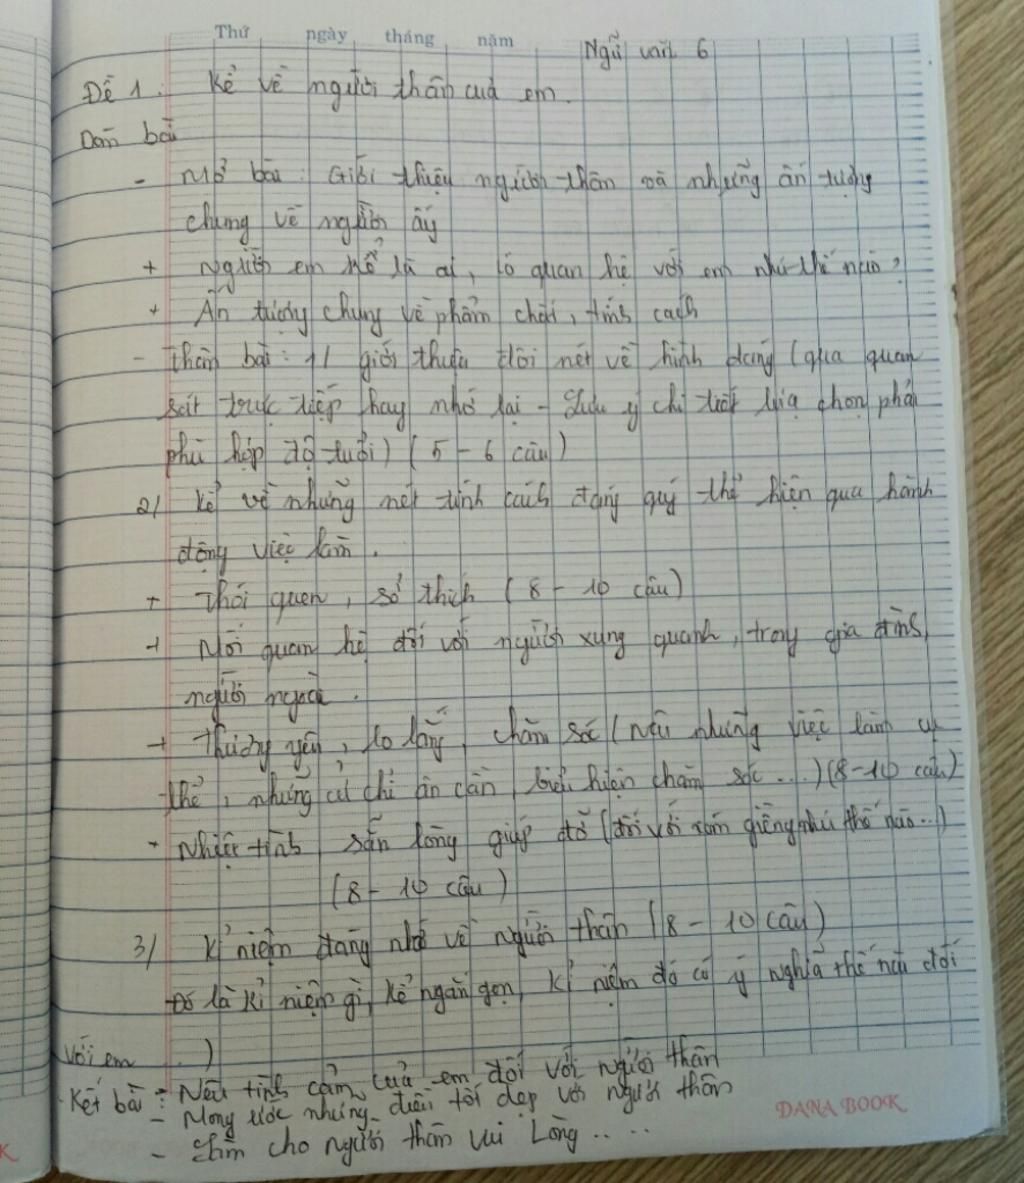 Thứ ngày tháng năm
Ngữ văn 6
Đề 1: Kể về người thân của em.
Dàn bài
- Mở bài: Giới thiệu người thân và những ấn tượng
chung về người ấy
+ Người em kể là ai, có quan hệ với em như thế nào?
+ Ấn tượng chung về phẩm chất, tính cách
- Thân bài: 1/ giới thiệu đôi nét về hình dáng (qua quan
sát trực tiếp hay nhớ lại - Lưu ý chi tiết lựa chọn phải
phù hợp độ tuổi) (5 - 6 câu)
2/ Kể về những nét tính cách đáng quý thể hiện qua hành
động việc làm.
+ Thói quen, sở thích (8 - 10 câu)
+ Mối quan hệ đối với người xung quanh, trong gia đình,
người ngoài.
+ Thương yêu, lo lắng, chăm sóc (nêu những việc làm cụ
thể, những cử chỉ ân cần, biểu hiện chăm sóc ...) (8-10 câu)
+ Nhiệt tình, sẵn lòng giúp đỡ (đối với xóm giềng như thế nào...)
(8 - 10 câu)
3/ Kỉ niệm đáng nhớ về người thân (8 - 10 câu)
Đó là kỉ niệm gì, kể ngắn gọn, kỉ niệm đó có ý nghĩa thế nào đối
với em )
Kết bài: - Nêu tình cảm của em đối với người thân
- Mong ước những điều tốt đẹp với người thân
- Làm cho người thân vui lòng.. ..
DANA BOOK
K